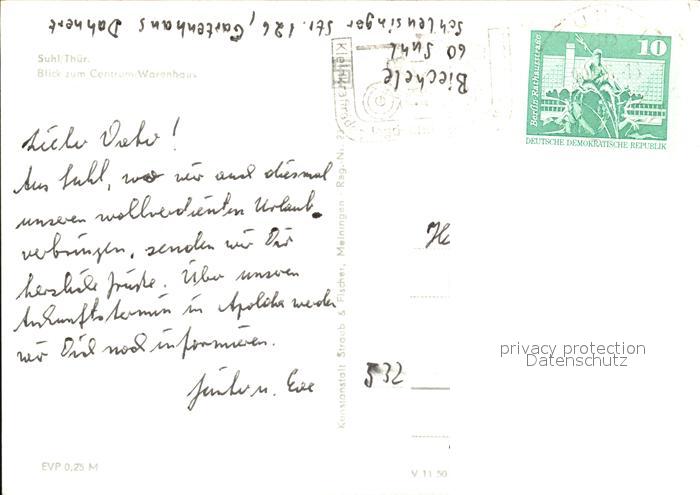 Schleusinger Str. 126, Gartenhaus Dähnert
60 Suhl
Biechele
Suhl/Thür.
Blick zum Centrum-Warenhaus
10
Berlin, Rathausstraße
DEUTSCHE DEMOKRATISCHE REPUBLIK
Lieber Vater!
Aus Suhl, wo wir auch diesmal
unseren wohlverdienten Urlaub
verbringen, senden wir Dir
herzliche Grüße. Über unseren
Ankunftstermin in Apolda werden
wir Dich noch informieren.
Günter u. Eva
Kunstanstalt Straub & Fischer, Meiningen Reg. Nr.
He
532
privacy protection
Datenschutz
EVP 0,25 M
V 11 50